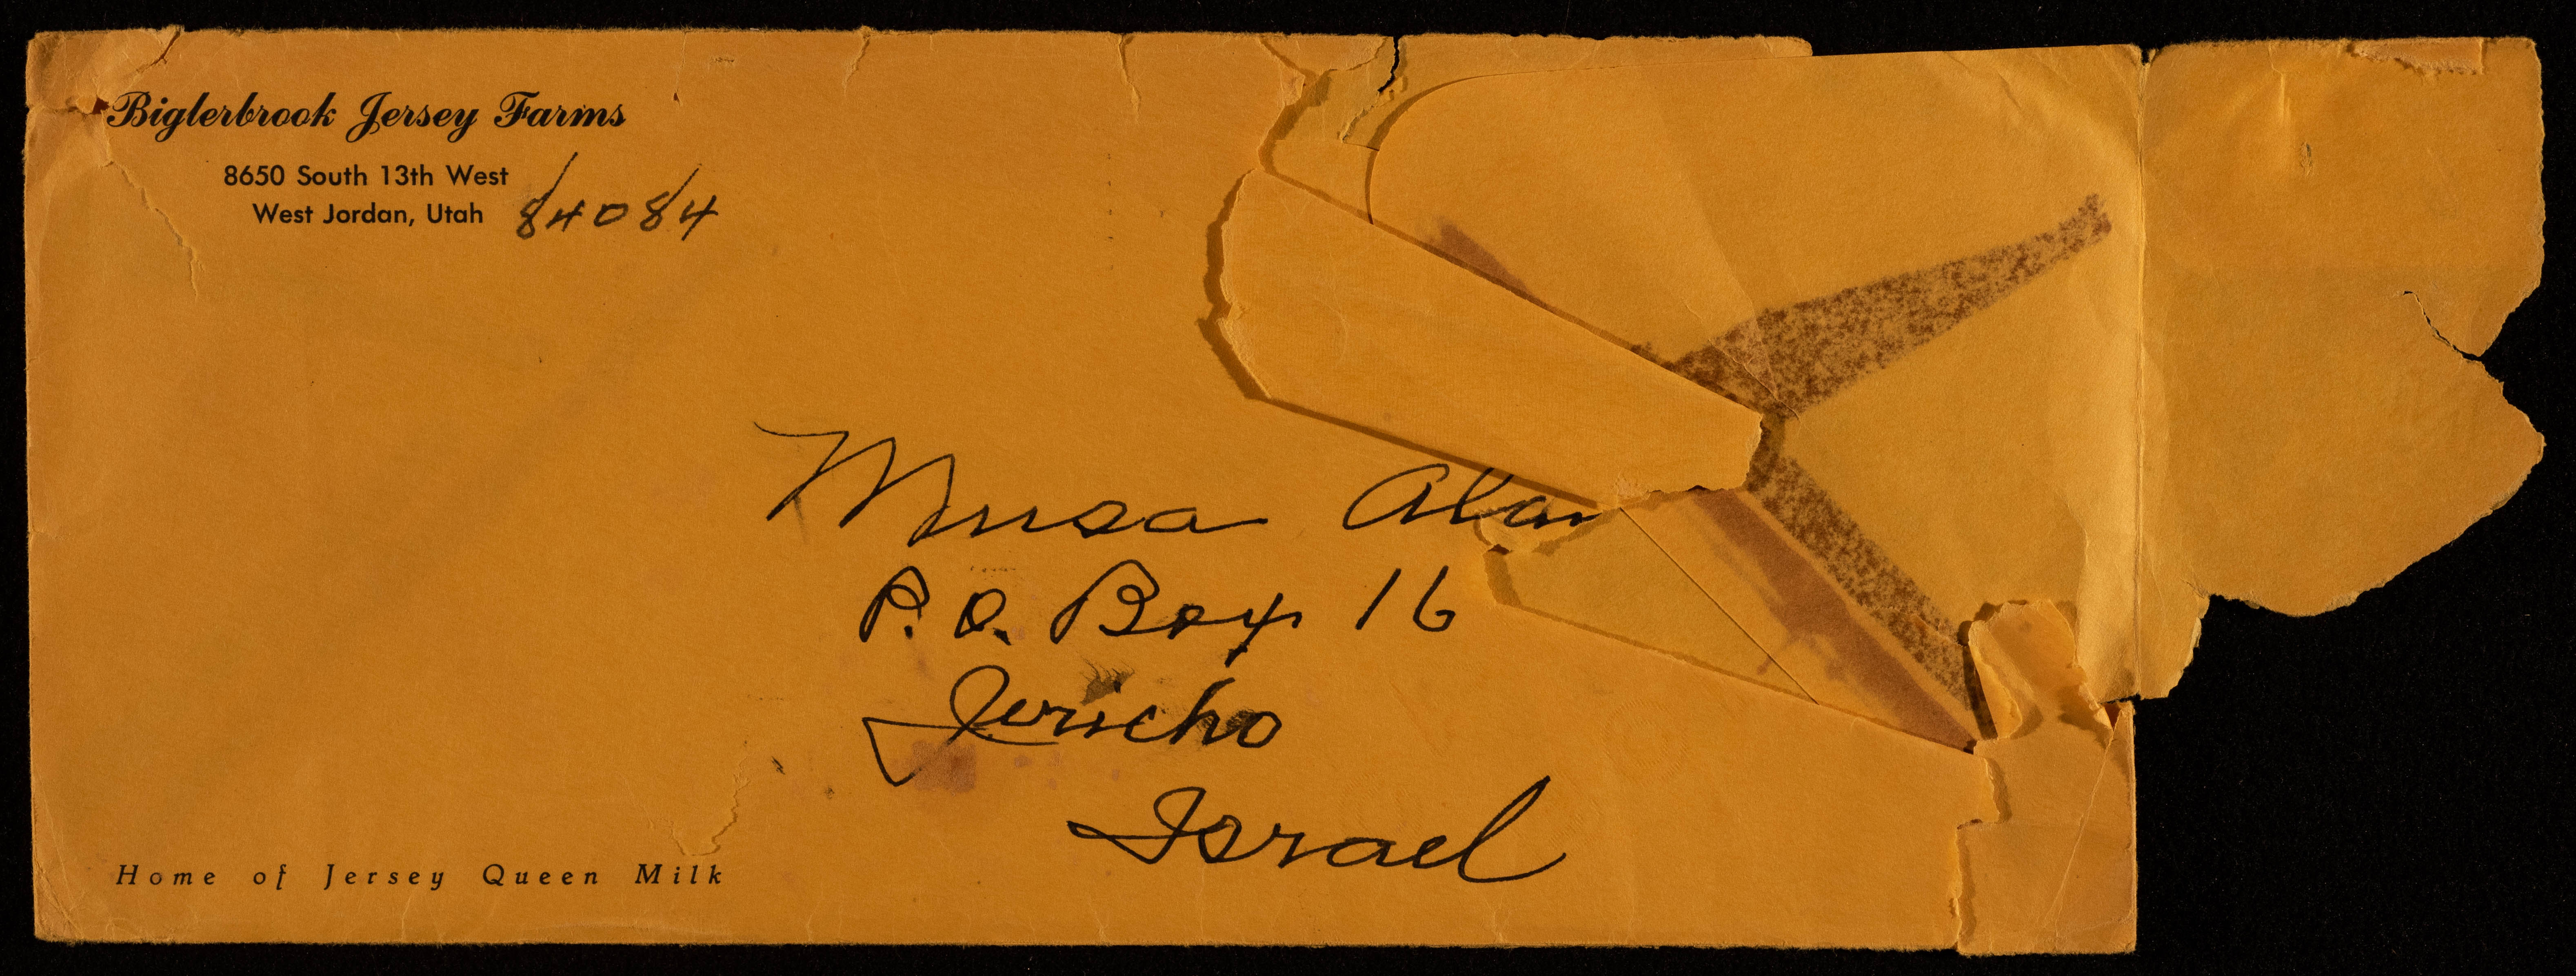 Biglerbrook Jersey Farms
8650 South 13th West
West Jordan, Utah 84084
Musa Ala
P.O. Box 16
Jericho
Israel
Home of Jersey Queen Milk